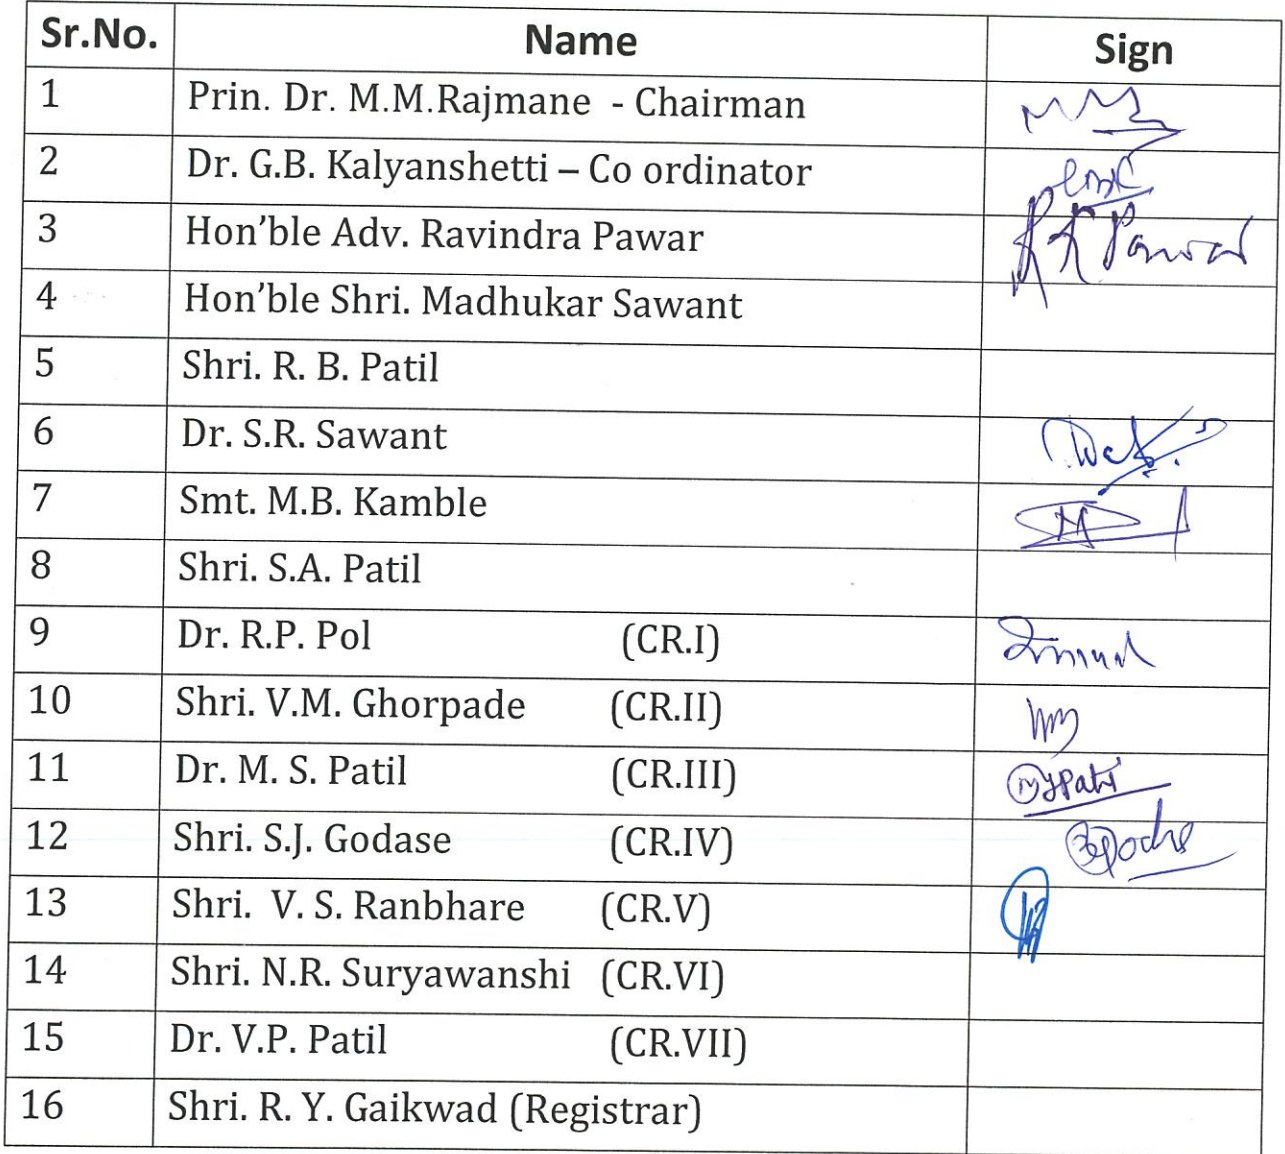 Sr.No. Name Sign
1 Prin. Dr. M.M.Rajmane - Chairman
2 Dr. G.B. Kalyanshetti – Co ordinator
3 Hon’ble Adv. Ravindra Pawar R R Pawar
4 Hon’ble Shri. Madhukar Sawant
5 Shri. R. B. Patil
6 Dr. S.R. Sawant
7 Smt. M.B. Kamble
8 Shri. S.A. Patil
9 Dr. R.P. Pol (CR.I)
10 Shri. V.M. Ghorpade (CR.II)
11 Dr. M. S. Patil (CR.III)
12 Shri. S.J. Godase (CR.IV)
13 Shri. V. S. Ranbhare (CR.V)
14 Shri. N.R. Suryawanshi (CR.VI)
15 Dr. V.P. Patil (CR.VII)
16 Shri. R. Y. Gaikwad (Registrar)